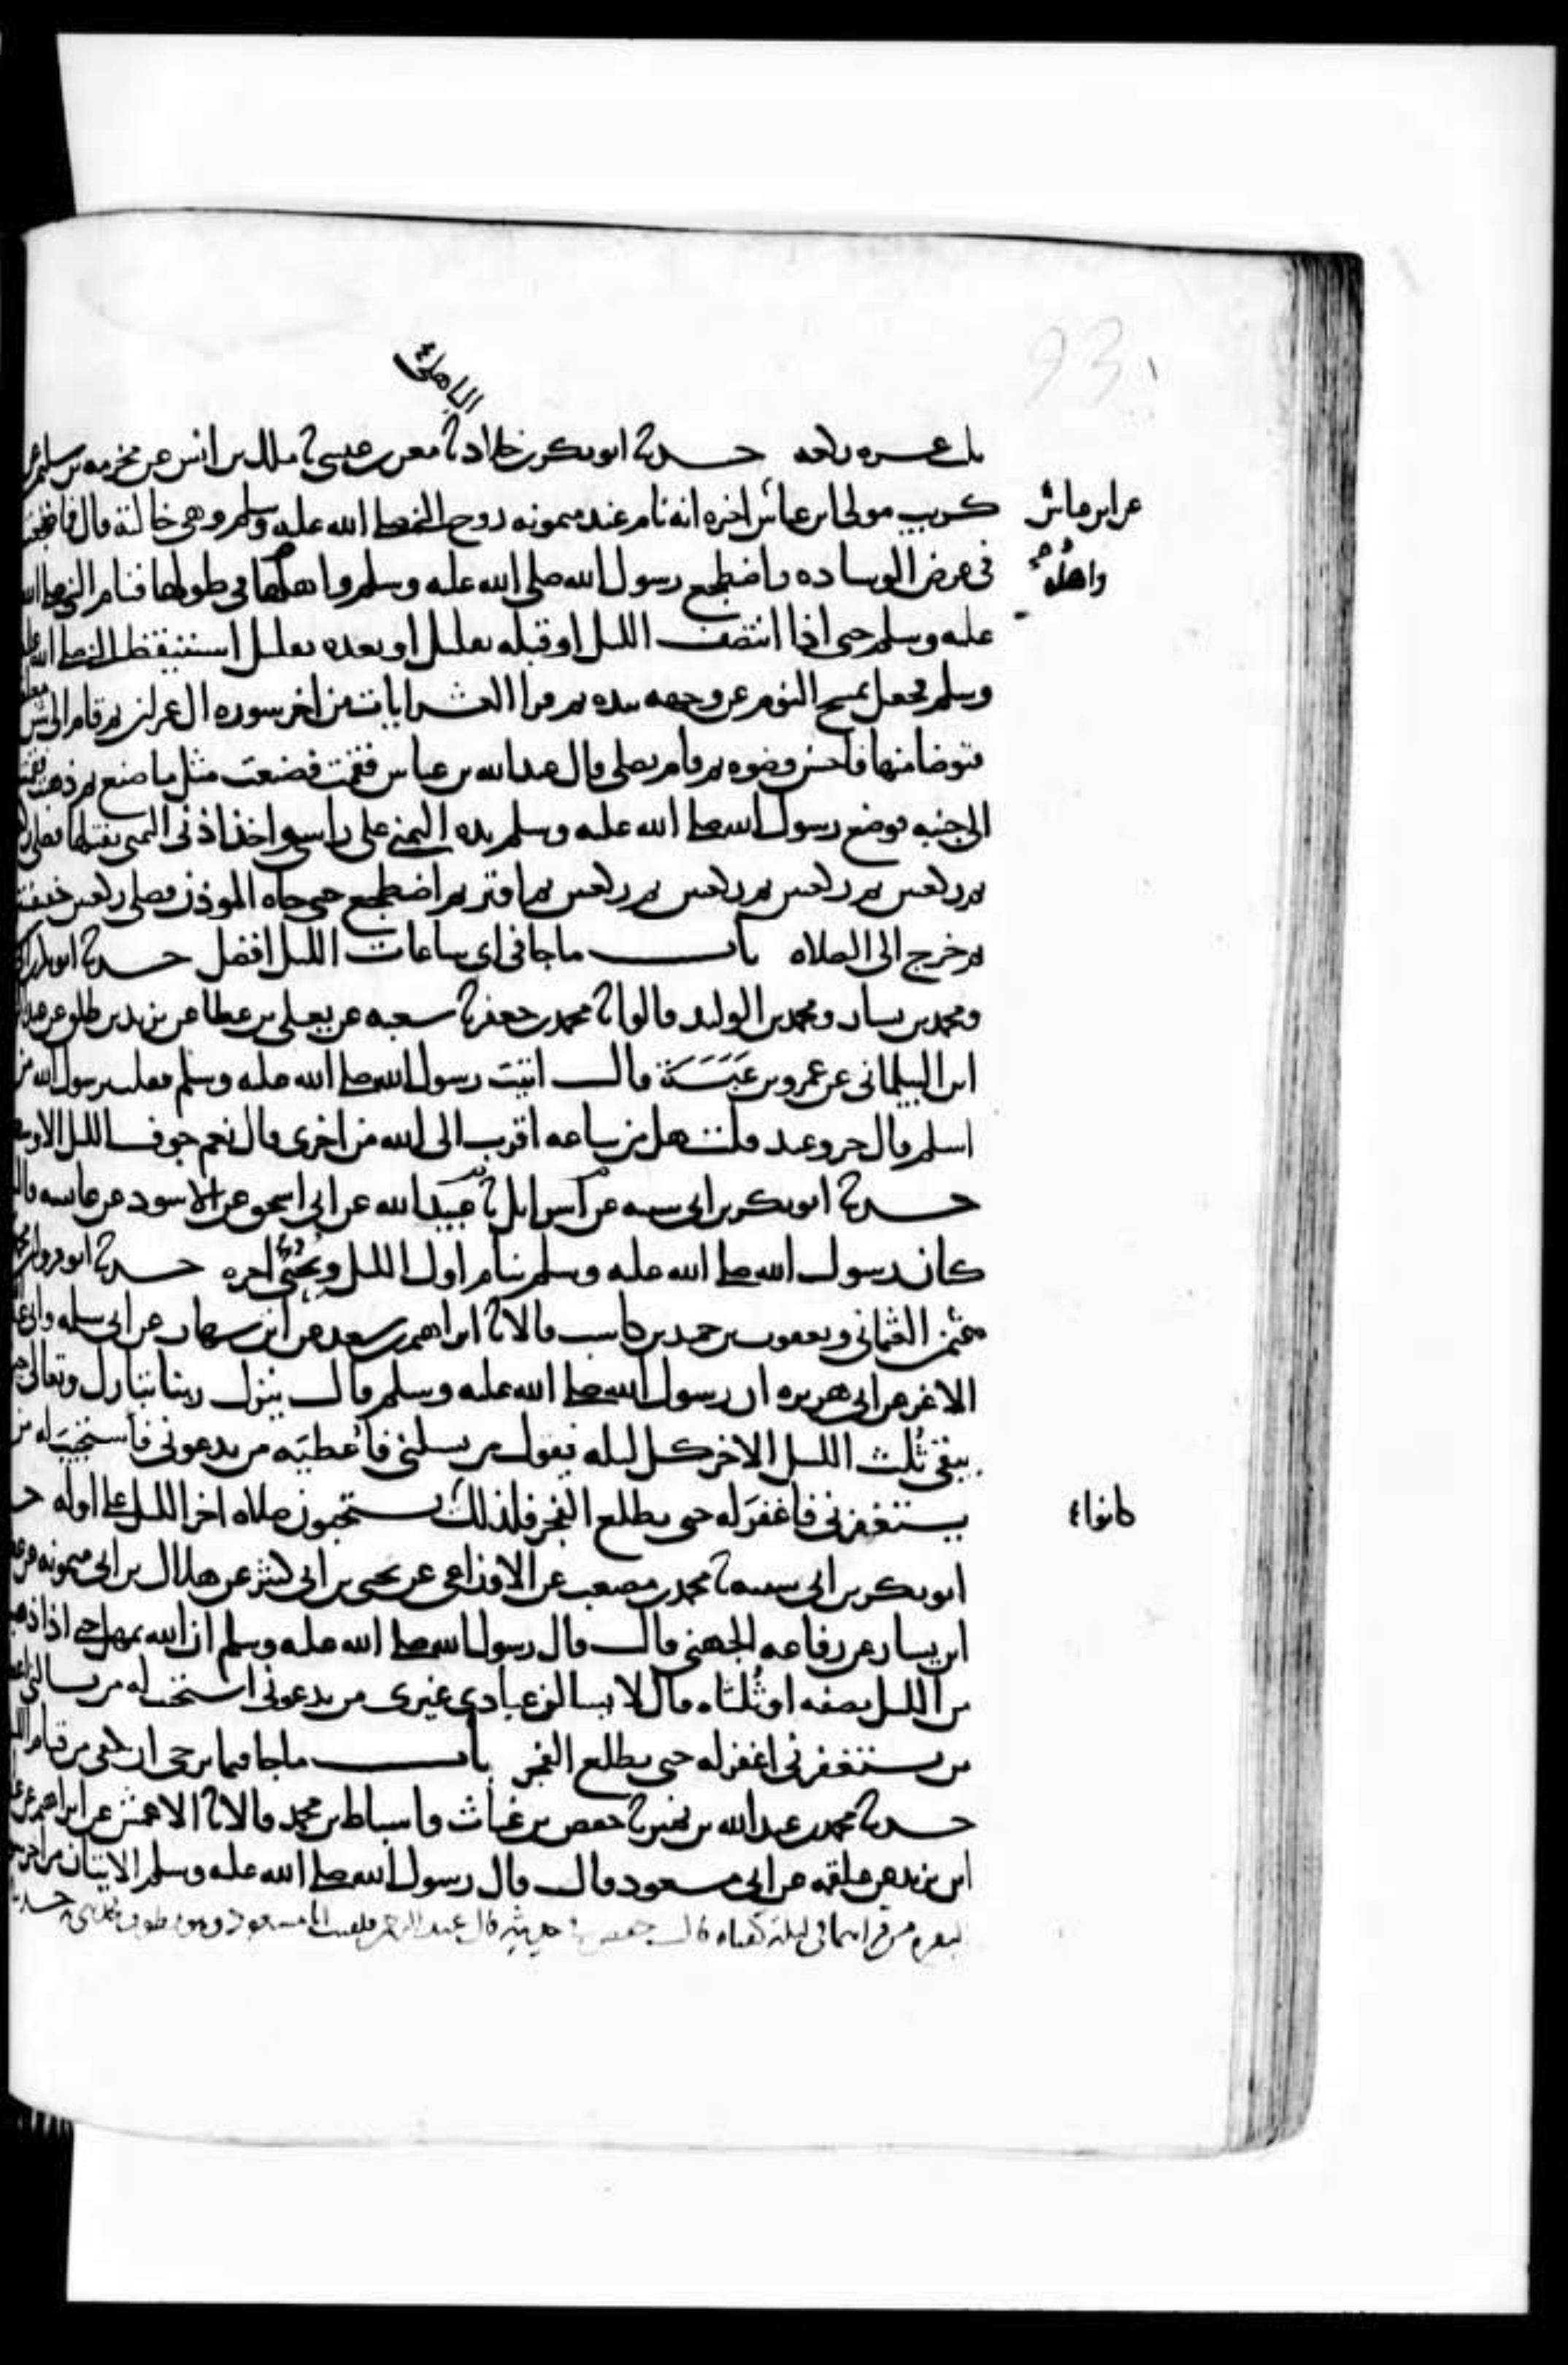 93
الباهلي
ثلث عشره ركعه حدثنا ابو بكر بن خلاد ثنا معن بن عيسى ثنا ملك بن انس عن مخرمه بن سليمن عن
كريب مولى ابن عباس اخبره انه نام عند ميمونه زوج النبي صلى الله عليه وسلم وهي خالته قال فاضطجعت
عن ابن عباس
في عرض الوساده واضطجع رسول الله صلى الله عليه وسلم واهلها في طولها فنام النبي صلى الله
واهله
عليه وسلم حتى اذا انتصف الليل او قبله بقليل او بعده بقليل استيقظ النبي صلى الله عليه
وسلم فجعل يمسح النوم عن وجهه بيده ثم قرا العشر ايات من اخر سوره ال عمران ثم قام الى شن معلقه
فتوضا منها فاحسن وضوه ثم قام يصلي قال عبد الله بن عباس فقمت فصنعت مثل ما صنع ثم ذهبت فقمت
الى جنبه فوضع رسول الله صلى الله عليه وسلم يده اليمنى على راسي واخذ اذني اليمنى يفتلها فصلى
ثم ركعتين ثم ركعتين ثم ركعتين ثم ركعتين ثم اوتر ثم اضطجع حتى جاه الموذن فصلى ركعتين خفيفتين
ثم خرج الى الصلاه باب ما جا في اي ساعات الليل افضل حدثنا ابو بكر
ومحمد بن بشار ومحمد بن الوليد قالوا ثنا محمد بن جعفر ثنا شعبه عن يعلى بن عطا عن يزيد بن طلق عن عبد
ابن البيلماني عن عمرو بن عَبَسَة قال اتيت رسول الله صلى الله عليه وسلم فقلت يرسول الله من
اسلم قال حر وعبد قلت هل من ساعه اقرب الى الله من اخرى قال نعم جوف الليل الاوسط
حدثنا ابو بكر بن ابي شيبه عن اسرايل ثنا عبيد الله عن ابي اسحق عن الاسود عن عايشه قالت
كان رسول الله صلى الله عليه وسلم ينام اول الليل ويحيى اخره حدثنا ابو مروان محمد
عثمن العثماني ويعقوب بن حميد بن كاسب قالا ثنا ابراهيم بن سعد عن ابن شهاب عن ابي سلمه وابي عبد
الاغر عن ابي هريره ان رسول الله صلى الله عليه وسلم قال ينزل ربنا تبارك وتعالى حين
يبقى ثُلث الليل الاخر كل ليله فيقول من يسلني فأعطيَه من يدعوني فاستجيبَ له من
يستغفرني فاغفرَ له حتى يطلع الفجر فلذلك يستحبون صلاه اخر الليل على اوله حدثنا
كانوا
ابو بكر بن ابي شيبه ثنا محمد بن مصعب عن الاوزاعي عن يحيى بن ابي كثير عن هلال بن ابي ميمونه عن عطا
ابن يسار عن رفاعه الجهني قال قال رسول الله صلى الله عليه وسلم ان الله يمهل حتى اذا ذهب
من الليل نصفه او ثُلثاه قال لا يسالن عبادي غيري من يدعوني استجب له من يسالني اعطه
من يستغفرني اغفر له حتى يطلع الفجر باب ما جا فيما يرجى ان يكفي من قيام الليل
حدثنا محمد بن عبد الله بن نمير ثنا حفص بن غياث واسباط بن محمد قالا ثنا الاعمش عن ابراهيم عن عبد
ابن يزيد عن علقمه عن ابي مسعود قال قال رسول الله صلى الله عليه وسلم الايتان من اخر سوره
البقره من قراهما في ليلة كفتاه قال حفص في حديثه قال عبد الرحمن فلقيت ابا مسعود وهو يطوف فحدثني به حدثنا